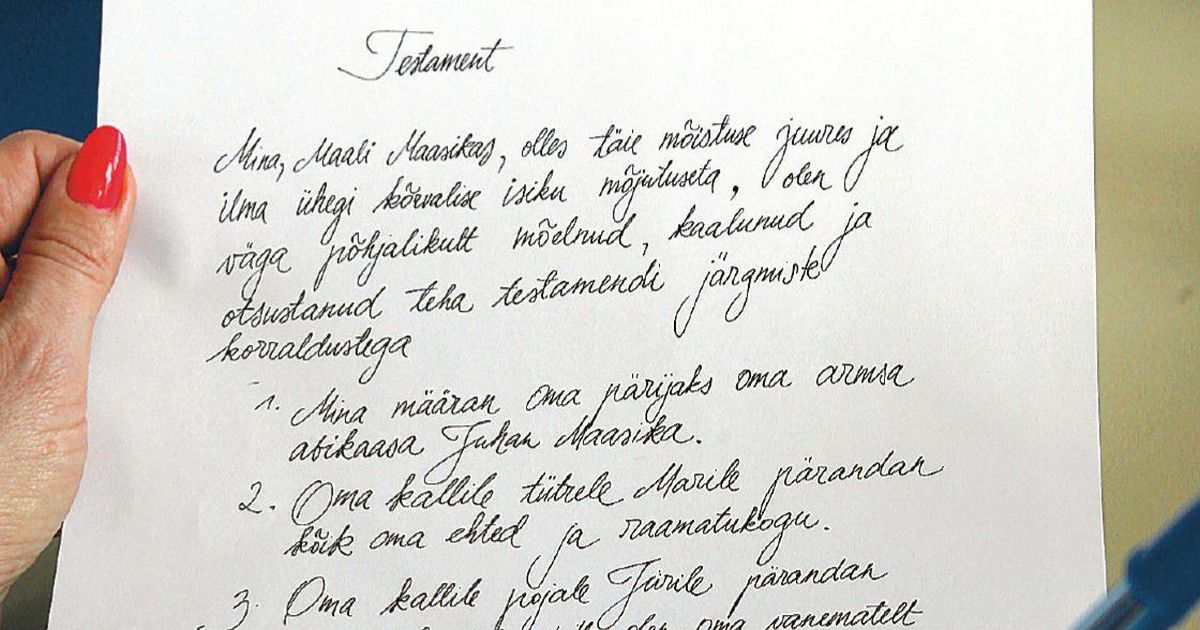 Testament
Mina, Maali Maasikas, olles täie mõistuse juures ja
ilma ühegi kõrvalise isiku mõjutuseta, olen
väga põhjalikult mõelnud, kaalunud ja
otsustanud teha testamendi järgmiste
korraldustega
1. Mina määran oma pärijaks oma armsa
abikaasa Juhan Maasika.
2. Oma kallile tütrele Marile pärandan
kõik oma ehted ja raamatukogu.
3. Oma kallile pojale Jürile pärandan
olen oma vanematelt